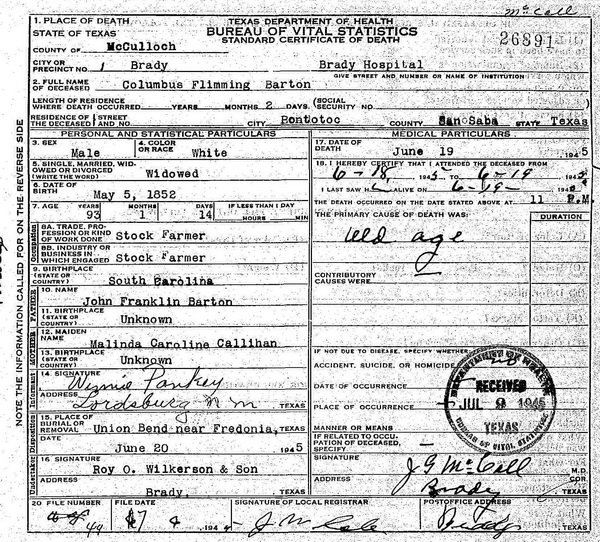 McCall
1. PLACE OF DEATH
STATE OF TEXAS
TEXAS DEPARTMENT OF HEALTH
BUREAU OF VITAL STATISTICS
STANDARD CERTIFICATE OF DEATH
26891
COUNTY OF McCulloch
CITY OR PRECINCT NO. 1 Brady Brady Hospital
GIVE STREET AND NUMBER OR NAME OF INSTITUTION
2. FULL NAME OF DECEASED Columbus Flimming Barton
LENGTH OF RESIDENCE WHERE DEATH OCCURRED YEARS MONTHS 2 DAYS (SOCIAL SECURITY NO.
RESIDENCE OF THE DECEASED STREET AND NO. CITY Pontotoc COUNTY San Saba STATE Texas
PERSONAL AND STATISTICAL PARTICULARS
3. SEX Male
4. COLOR OR RACE White
5. SINGLE, MARRIED, WIDOWED OR DIVORCED (WRITE THE WORD) Widowed
6. DATE OF BIRTH May 5, 1852
7. AGE YEARS 93 MONTHS 1 DAYS 14 IF LESS THAN 1 DAY HOURS MIN
8A. TRADE, PROFESSION OR KIND OF WORK DONE Stock Farmer
8B. INDUSTRY OR BUSINESS IN WHICH ENGAGED Stock Farmer
9. BIRTHPLACE (STATE OR COUNTRY) South Carolina
10. NAME
John Franklin Barton
11. BIRTHPLACE (STATE OR COUNTRY) Unknown
12. MAIDEN NAME Malinda Caroline Callihan
13. BIRTHPLACE (STATE OR COUNTRY) Unknown
14. SIGNATURE Winnie Pankey
ADDRESS Lordsburg N M TEXAS
15. PLACE OF BURIAL OR REMOVAL Union Bend near Fredonia, TEXAS
DATE June 20 1945
16. SIGNATURE
Roy O. Wilkerson & Son
ADDRESS Brady, TEXAS
MEDICAL PARTICULARS
17. DATE OF DEATH
June 19 1945
18. I HEREBY CERTIFY THAT I ATTENDED THE DECEASED FROM
6-18 1945 TO 6-19 1945
I LAST SAW H ALIVE ON 6-19- 194
THE DEATH OCCURRED ON THE DATE STATED ABOVE AT 11 P.M.
THE PRIMARY CAUSE OF DEATH WAS: DURATION
old age
CONTRIBUTORY CAUSES WERE:
IF NOT DUE TO DISEASE, SPECIFY WHETHER
ACCIDENT, SUICIDE, OR HOMICIDE
DATE OF OCCURRENCE
PLACE OF OCCURRENCE
MANNER OR MEANS
IF RELATED TO OCCUPATION OF DECEASED, SPECIFY
DEPARTMENT OF HEALTH
RECEIVED
JUL 9 1945
TEXAS
BUREAU OF VITAL STATISTICS
SIGNATURE J G McCall M.D.
ADDRESS Brady TEXAS
20 FILE NUMBER 49
FILE DATE 194
SIGNATURE OF LOCAL REGISTRAR
POSTOFFICE ADDRESS
Brady
Occupation
FATHER
MOTHER
Informant
Disposition
Undertaker
NOTE THE INFORMATION CALLED FOR ON THE REVERSE SIDE